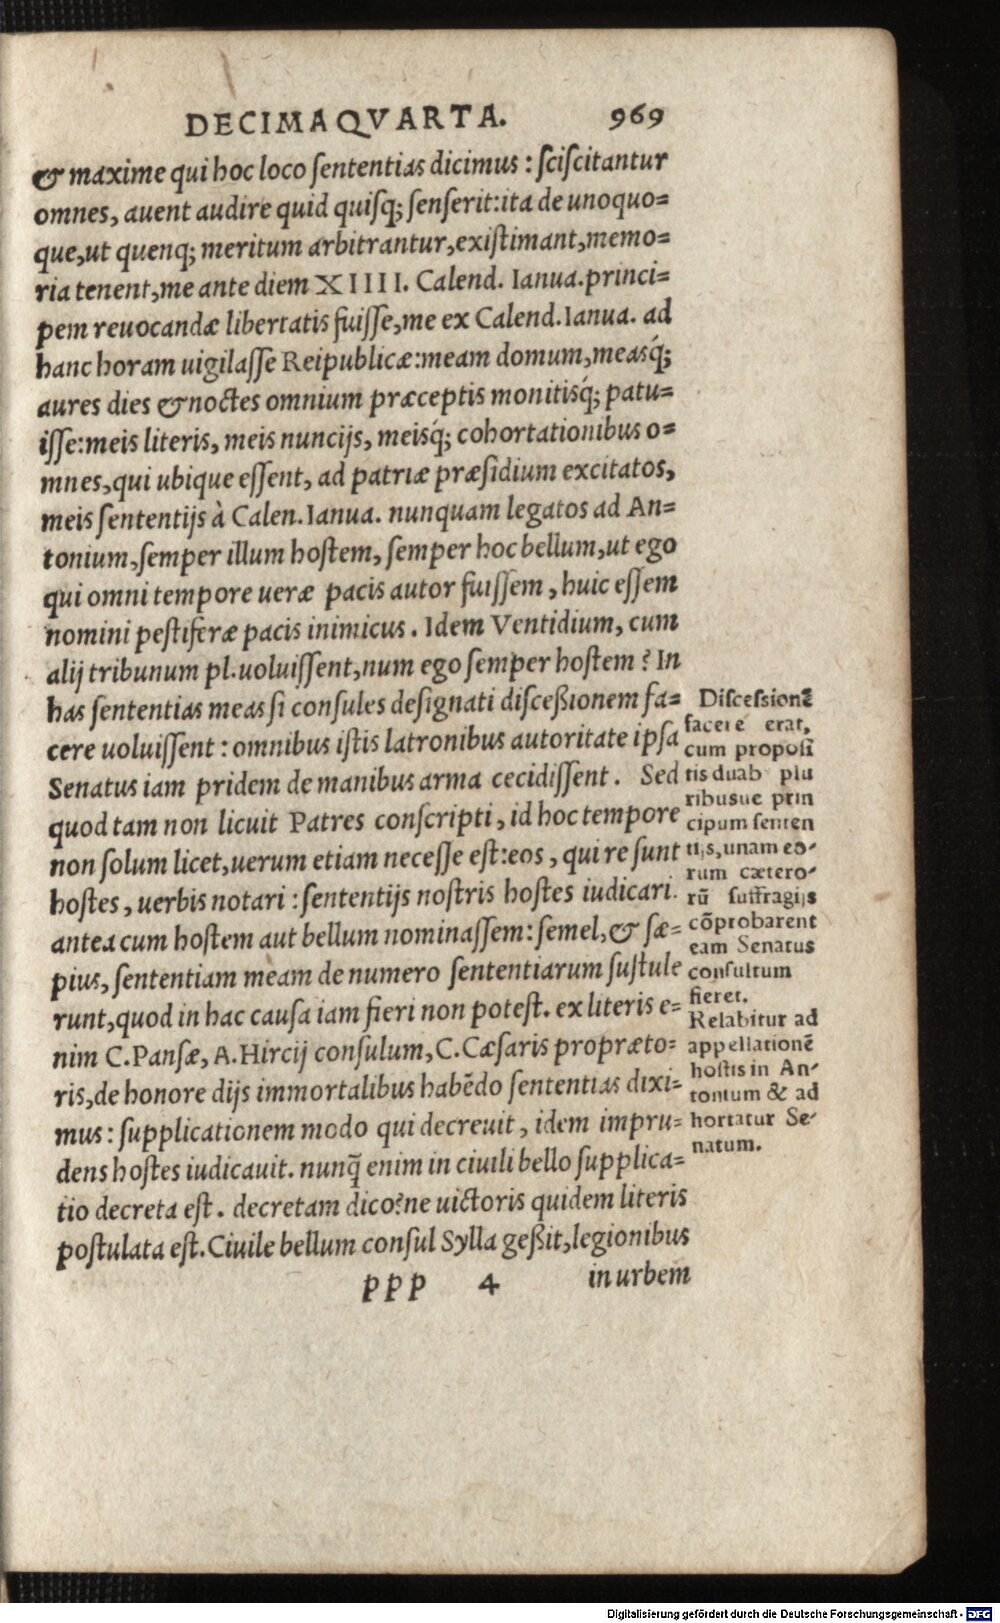 DECIMA QVARTA. 969
& maxime qui hoc loco ſententias dicimus : ſciſcitantur
omnes, auent audire quid quiſq; ſenſerit:ita de unoquo=
que,ut quenq; meritum arbitrantur,exiſtimant,memo=
ria tenent,me ante diem XIIII. Calend. Ianua.princi=
pem reuocandæ libertatis fuiſſe,me ex Calend.Ianua. ad
hanc horam uigilaſſe Reipublicæ:meam domum,measq́;
aures dies & noctes omnium præceptis monitisq́; patu=
iſſe:meis literis, meis nuncijs, meisq́; cohortationibus o=
mnes,qui ubique eſſent, ad patriæ præſidium excitatos,
meis ſententijs à Calen.Ianua. nunquam legatos ad An=
tonium,ſemper illum hoſtem, ſemper hoc bellum,ut ego
qui omni tempore ueræ pacis autor fuiſſem, huic eſſem
nomini peſtiferæ pacis inimicus. Idem Ventidium, cum
alij tribunum pl.uoluiſſent,num ego ſemper hoſtem? In
has ſententias meas ſi conſules deſignati diſceßionem fa=
cere uoluiſſent : omnibus iſtis latronibus autoritate ipſa
Senatus iam pridem de manibus arma cecidiſſent. Sed
quod tam non licuit Patres conſcripti, id hoc tempore
non ſolum licet,uerum etiam neceſſe eſt:eos, qui re ſunt
hoſtes, uerbis notari : ſententijs noſtris hoſtes iudicari.
antea cum hoſtem aut bellum nominaſſem: ſemel,& ſæ=
pius, ſententiam meam de numero ſententiarum ſuſtule
runt,quod in hac cauſa iam fieri non poteſt. ex literis e=
nim C.Panſæ, A.Hircij conſulum,C.Cæſaris proprætо=
ris,de honore dijs immortalibus habẽdo ſententias dixi=
mus: ſupplicationem modo qui decreuit, idem impru=
dens hoſtes iudicauit. nunq̃ enim in ciuili bello ſupplica=
tio decreta eſt. decretam dico?ne uictoris quidem literis
poſtulata eſt.Ciuile bellum conſul Sylla geßit,legionibus
ppp 4 in urbem
Diſceſsionẽ
facere erat,
cum propoſi
tis duab plu
ribusue prin
cipum ſenten
tijs,unam eo-
rum cætero-
rũ ſuffragijs
cõprobarent
eam Senatus
conſultum
fieret.
Relabitur ad
appellationẽ
hoſtis in An-
tonium & ad
hortatur Se-
natum.
Digitalisierung gefördert durch die Deutsche Forschungsgemeinschaft - DFG